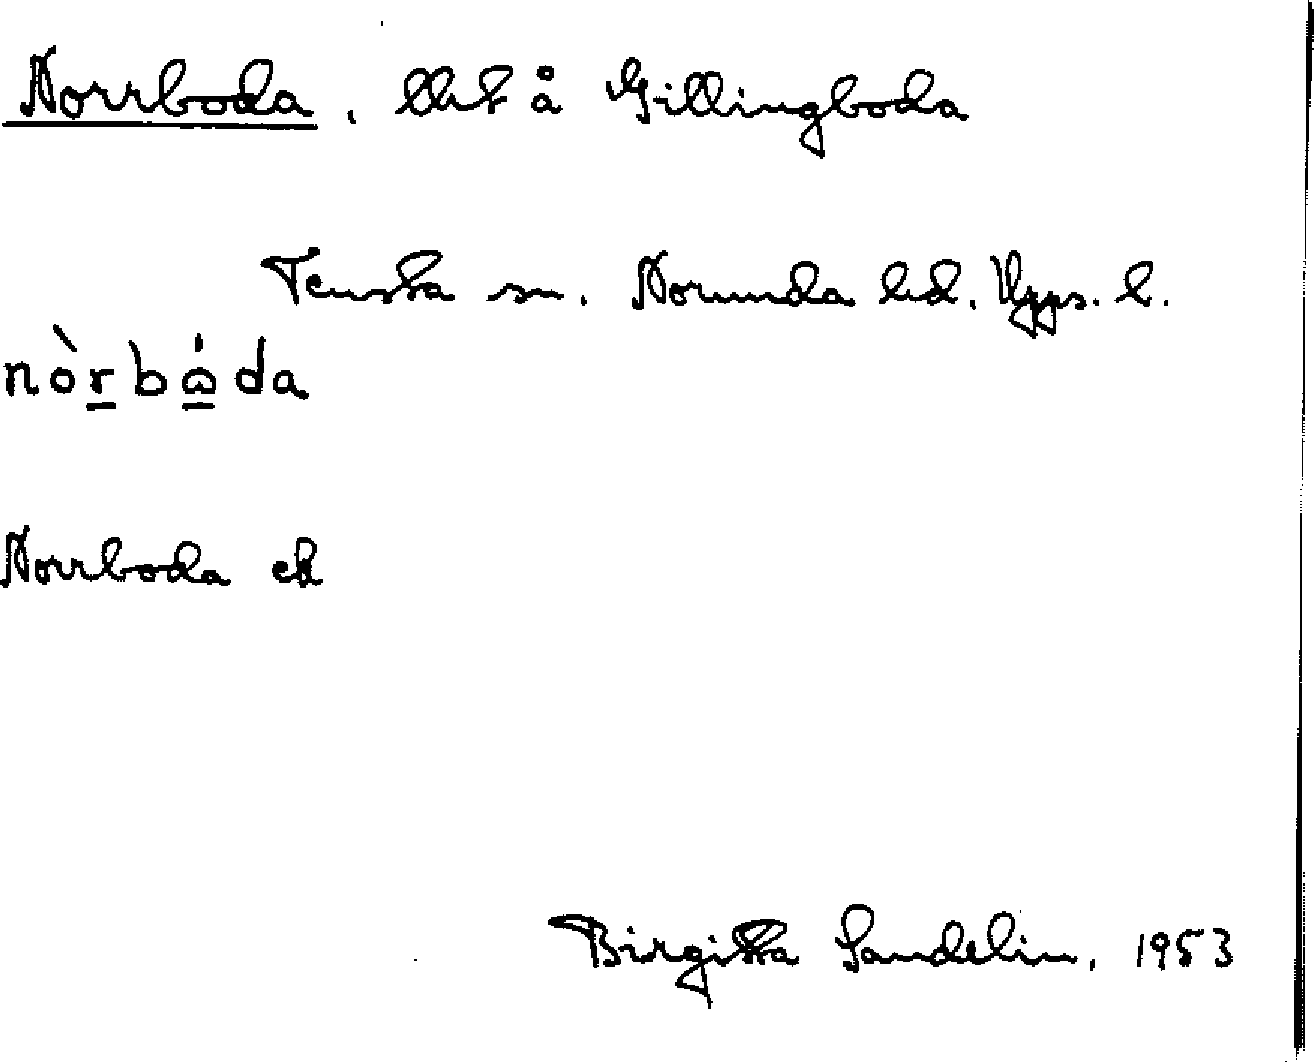 Norrboda, lht å Gillingboda
Tensta sn. Norunda hd. Upps. l.
nòrbω̇da
Norrboda ek
Birgitta Sandelin, 1953